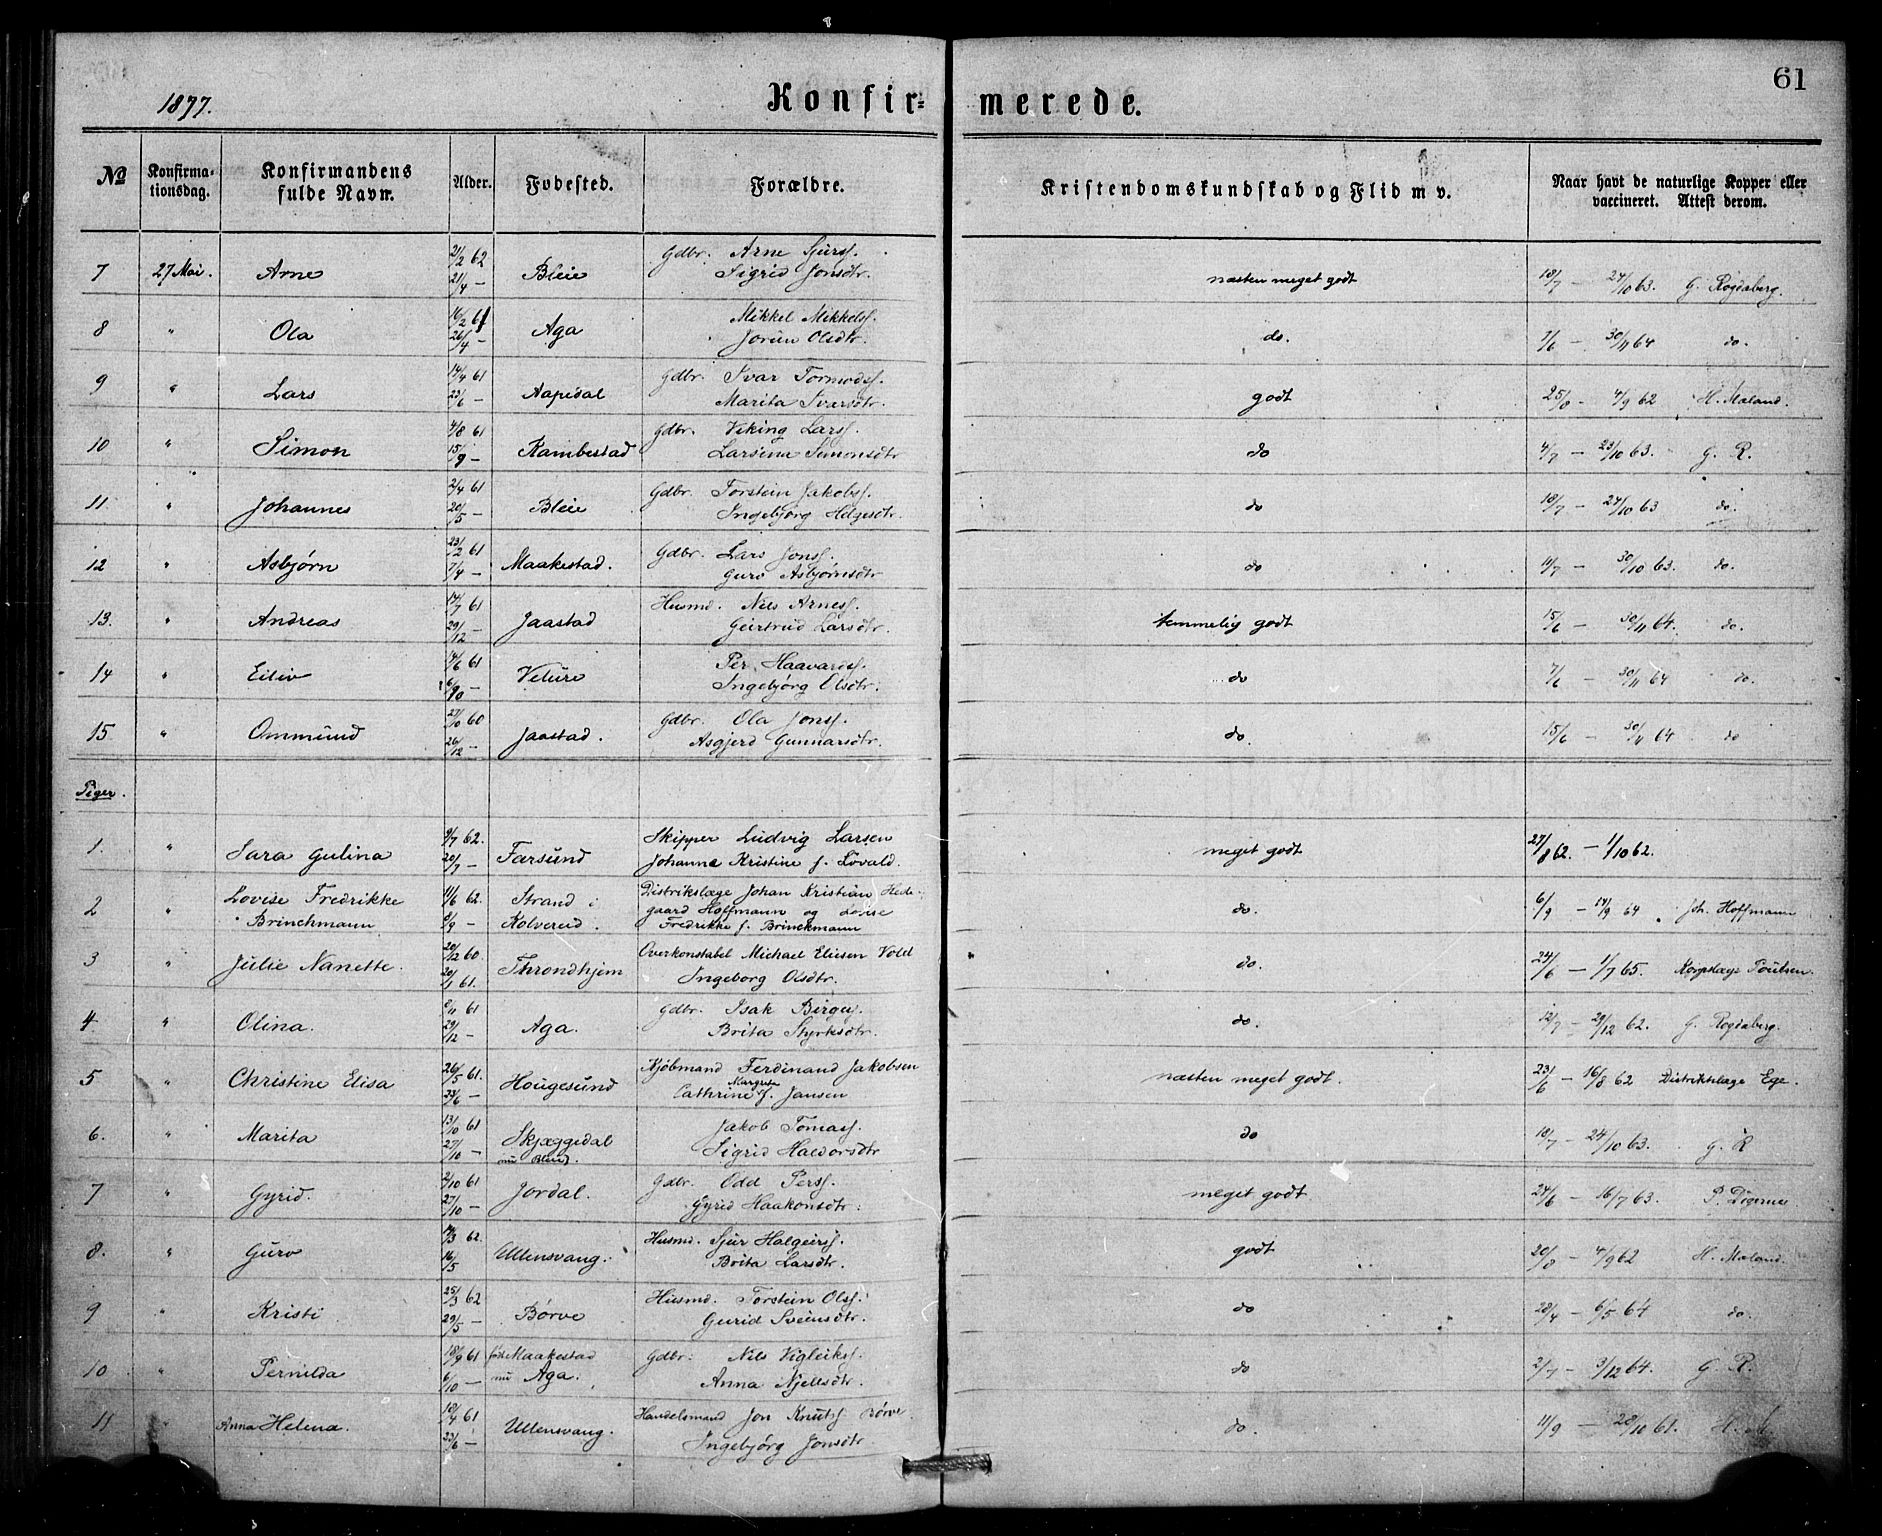 61
1877. Konfir- merede.
No Konfirma-tionsdag. Konfirmandens fulde Navn. Alder. Fødested. Forældre. Kristendomskundskab og Flid m v. Naar havt de naturlige Kopper eller vaccineret. Attest derom.
7 27 Mai. Arne 21/2 62 Bleie Gdbr. Arne Sjurss. næsten meget godt 18/7 — 24/10 63. G. Rogdaberg.
21/4 — Sigrid Jonsdtr.
8 " Ola 16/2 61 Aga Mikkel Mikkelss. do. 7/6 — 30/11 64 do.
26/4 — Jorun Olsdtr.
9 " Lars 14/4 61 Aapedal Gdbr. Ivar Tormodss. godt 25/8 — 4/9 62 H. Maland.
23/6 — Marita Ivarsdtr.
10 " Simon 4/8 61 Rambestad Gdbr. Viking Larss. do 4/7 — 23/10 63. G. R.
15/9 — Larsina Simonsdtr
11. " Johannes 2/4 61 Bleie Gdbr. Torstein Jakobss. do 18/7 — 24/10 63 do.
20/5 — Ingebjørg Helgesdtr.
12 " Asbjørn 23/2 61 Maakestad. Gdbr. Lars Jonss. do 11/7 — 30/10 63. do.
7/4 — Guro Asbjørnsdtr
13. " Andreas 14/7 61 Jaastad Husmd. Nils Arness. temmelig godt 15/6 — 30/11 64. do.
29/12 — Geirtrud Larsdtr.
14 " Eiliv 14/6 61 Velure Per Haavardss. do 7/6 — 30/11 64 do.
6/10 — Ingebjørg Olsdtr.
15. " Ommund 27/10 60 Jaastad. Gdbr. Ola Jonss. do. 15/6 — 30/11 64 do
26/12 — Asgjerd Gunnarsdtr.
Piger.
1. " Sara Gulina 9/7 62. Farsund Skipper Ludvig Larsen meget godt 27/8 62. — 1/10 62.
20/7 — Johanne Kristine f. Lovald.
2 " Lovise Fredrikke 11/6 62. Strand i Distriktslæge Johan Kristian Hede- do. 6/9 — 14/9 64 Joh. Hoffmann
Brinchmann 8/9 — Kolvereid. gaard Hoffmann og Lovise
Fredrikke f. Brinckmann
3 " Julie Nanette. 20/12 60. Throndhjem Overkonstabel Michael Eliesen Vold do. 24/6 — 1/7 65. Korpslæge Poulsen.
20/1 61. Ingeborg Olsdtr.
4. " Olina. 8/11 61 Aga. Gdbr. Isak Birges. do. 12/7 — 29/12 62. G. Rogdaberg.
29/12 — Brita Styrksdtr.
5 " Christine Elisa 26/5 61. Hougesund Kjøbmand Ferdinand Jakobsen næsten meget godt. 23/6 — 16/8 62 Distriktslæge Ege.
23/6 — Cathrine Margrete f. Jansen
6. " Marita 13/10 61 Skjæggedal Jakob Tomass. do 18/7 — 24/10 63. G. R
27/10 — nu Bleie. Sigrid Haldorsdtr
7 " Gyrid. 2/10 61 Jordal. Gdbr. Odd Perss. meget godt 24/6 — 16/7 63. P. Digernes
27/10 — Gyrid Haakonsdtr.
8. " Guro 14/3 62. Ullensvang. Husmd. Sjur Halgeirss. godt 20/8 — 4/9 62 H. Maland.
16/5 Brita Larsdtr.
9 " Kristi 25/3 62 Børve Husmd. Torstein Olss. do 28/4 — 6/5 64 do.
29/5 — Gurid Sveinsdtr.
10. " Pernilda 18/9 61 født Maakestad Gdbr. Nils Vigleikss. do 2/7 — 3/12 64. G. R.
6/10 — nu Aga. Anna Njellsdtr.
11 " Anna Helena. 10/4 61 Ullensvang. Handelsmand Jon Knutss Børve. do. 11/9 — 28/10 61. H. M.
23/6 — Ingebjørg Jonsdtr.